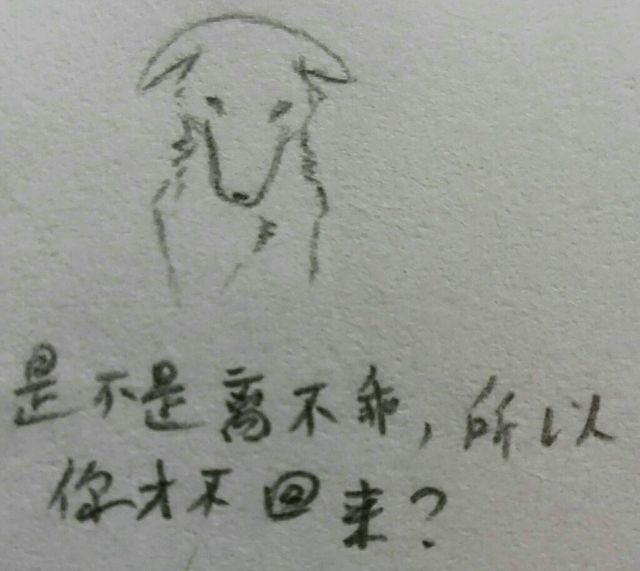 是不是离不乖，所以
你才不回来？